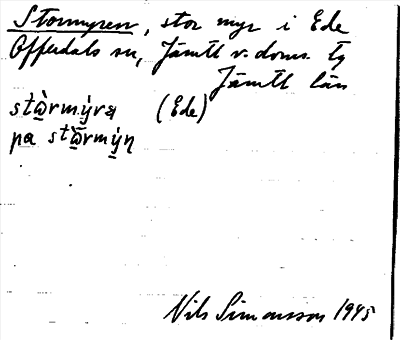 Stormyren, stor myr i Ede
Offerdals sn, Jämtl v. doms. tg
Jämtl län
stɷ̀rmýrɐ (Ede)
pa stɷ̀rmýn̥
Nils Simonsson 1945